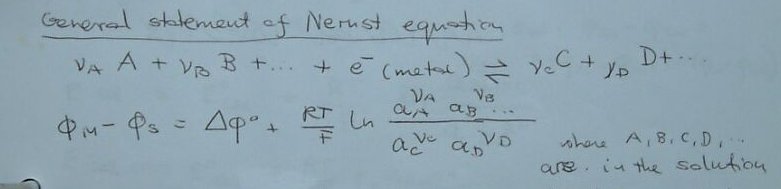 General statement of Nernst equation
ν_A A + ν_B B + ... + e⁻ (metal) ⇌ ν_C C + ν_D D + ...
ϕ_M - ϕ_S = Δφ° + RT/F ln (a_A^{ν_A} a_B^{ν_B} ...)/(a_C^{ν_C} a_D^{ν_D})
where A, B, C, D, ...
are. in the solution